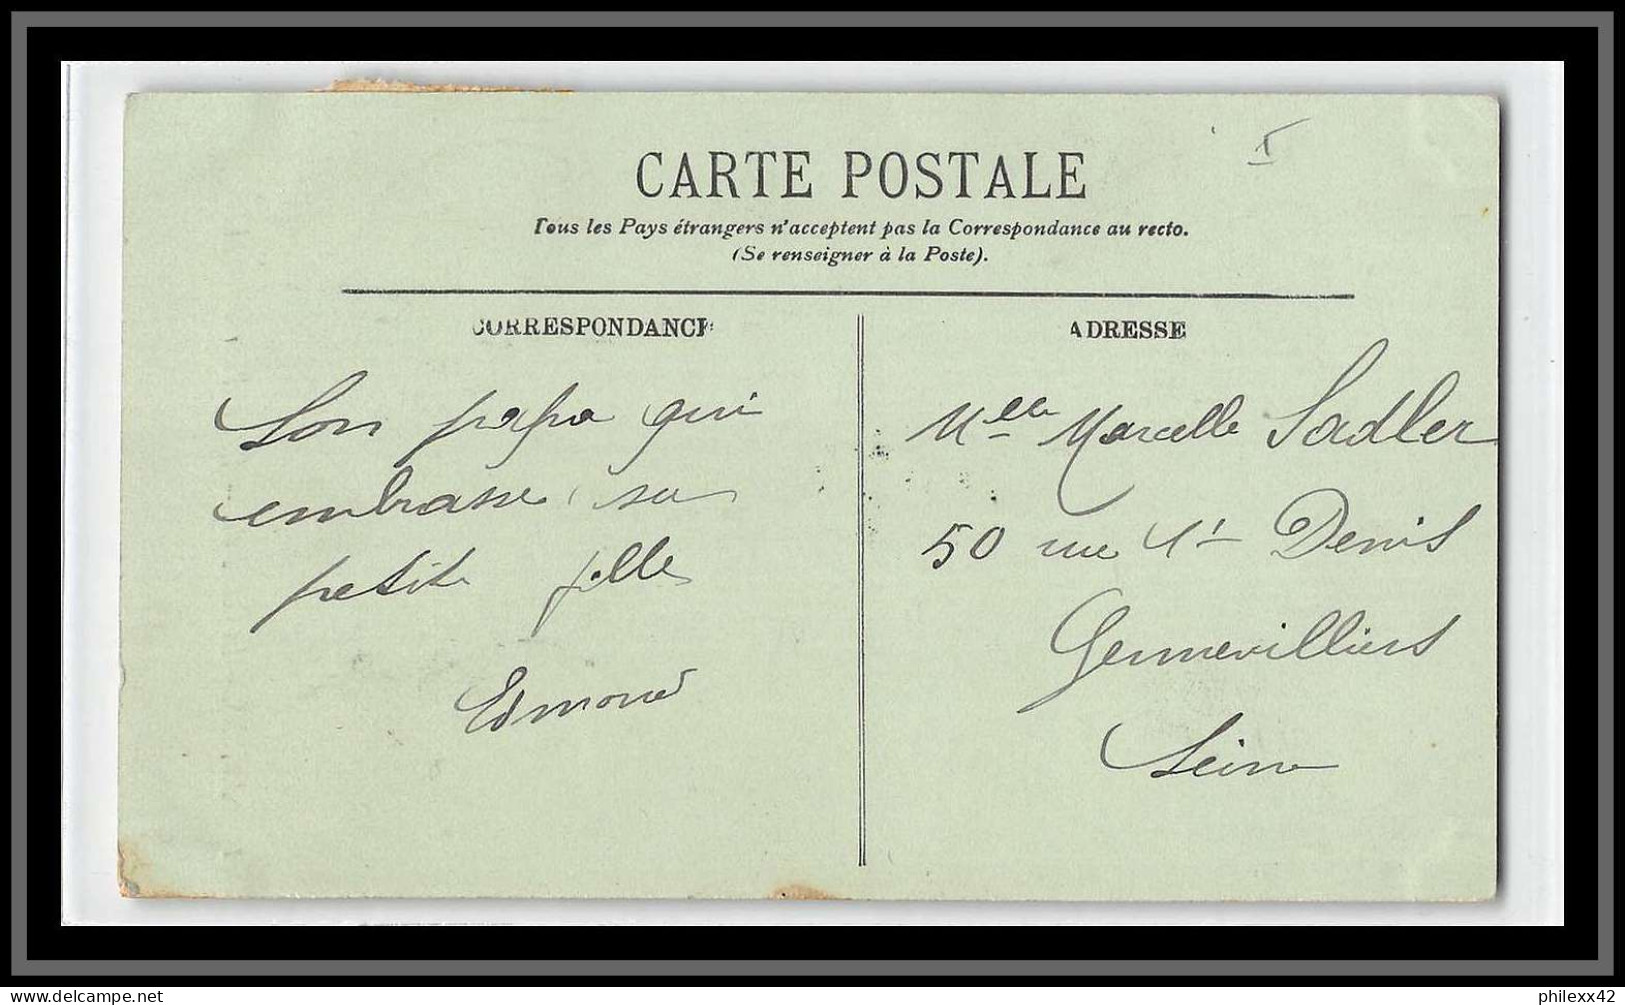 CARTE POSTALE
Tous les Pays étrangers n'acceptent pas la Correspondance au recto.
(Se renseigner à la Poste).
CORRESPONDANCE
Son papa qui
embrasse sa
petite fille
Edmond
ADRESSE
Melle Marcelle Sadler
50 rue St Denis
Gennevilliers
Seine
delcampe.net
philexx42